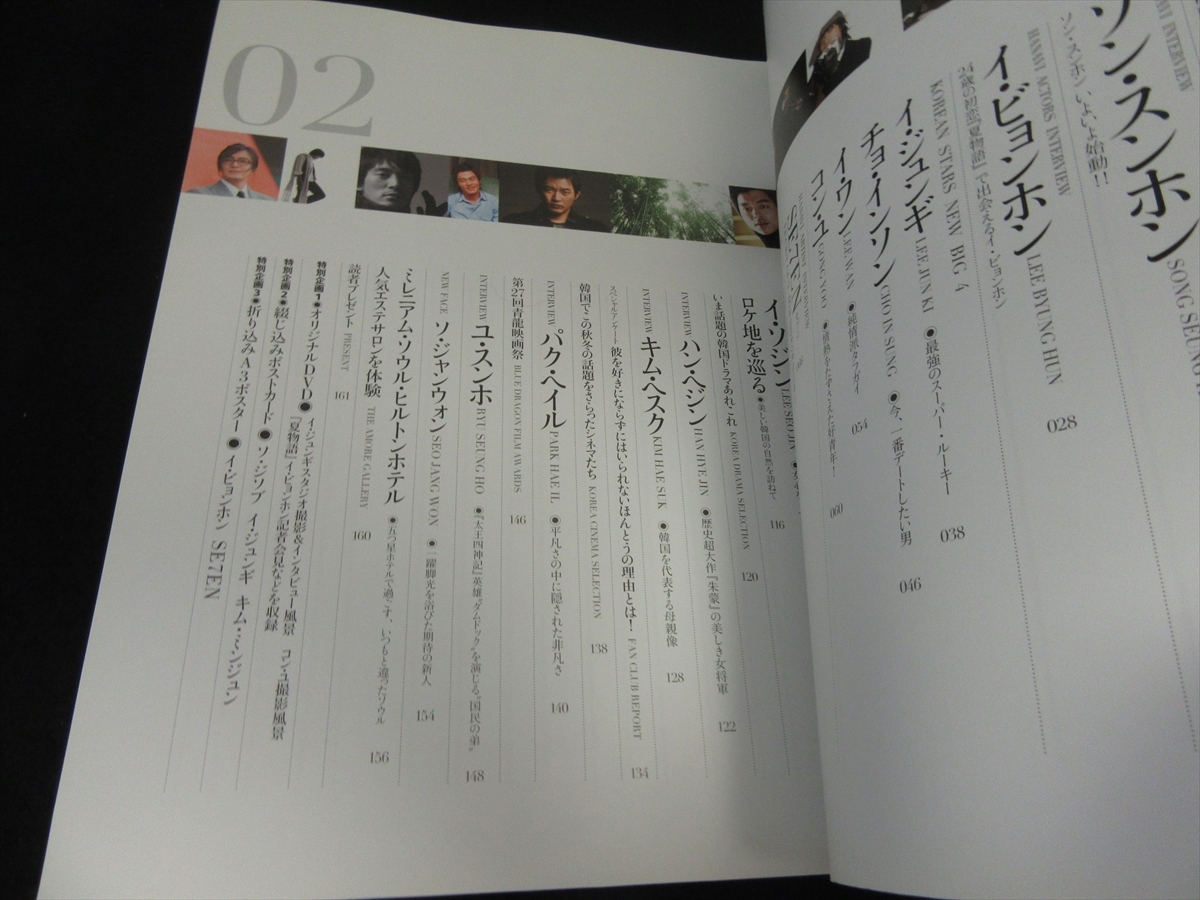 INTERVIEW
ソン・スンホン
ソン・スンホン、いよいよ始動!!
HANAVI ACTORS INTERVIEW
イ・ビョンホン LEE BYUNG HUN
24歳の初恋『夏物語』で出会えるイ・ビョンホン
028
KOREAN STARS NEW BIG 4
イ・ジュンギ LEE JUN KI ●最強のスーパー・ルーキー
038
チョ・インソン CHO IN SUNG ●今、一番デートしたい男
046
イ・ワン LEE WAN ●純情派タフガイ
054
コン・ユ GONG YOO
060
SE7EN
02
イ・ソジン LEE SEO JIN
ロケ地を巡る ●美しい韓国の自然を訪ねて
116
いま話題の韓国ドラマあれこれ KOREA DRAMA SELECTION
120
INTERVIEW ハン・ヘジン HAN HYE JIN ●歴史超大作『朱蒙』の美しき女将軍
122
INTERVIEW キム・ヘスク KIM HAE SUK ●韓国を代表する母親像
128
スペシャルアンケート 彼を好きにならずにはいられないほんとうの理由とは! FAN CLUB REPORT
134
韓国でこの秋冬の話題をさらったシネマたち KOREA CINEMA SELECTION
138
INTERVIEW パク・ヘイル PARK HAE IL ●平凡さの中に隠された非凡さ
140
第27回青龍映画祭 BLUE DRAGON FILM AWARDS
146
INTERVIEW ユ・スンホ RYU SEUNG HO ●『太王四神記』英雄“ダムドック”を演じる“国民の弟”
148
NEW FACE ソ・ジャンウォン SEO JANG WON ●一躍脚光を浴びた期待の新人
154
ミレニアム・ソウル・ヒルトンホテル ●五つ星ホテルで過ごす、いつもと違ったソウル
156
人気エステサロンを体験 THE AMORE GALLERY
160
読者プレゼント PRESENT
161
特別企画1●オリジナルDVD● イ・ジュンギスタジオ撮影&インタビュー風景 コン・ユ撮影風景
『夏物語』イ・ビョンホン記者会見などを収録
特別企画2●綴じ込みポストカード●ソ・ジソブ イ・ジュンギ キム・ミンジュン
特別企画3●折り込みA3ポスター●イ・ビョンホン SE7EN